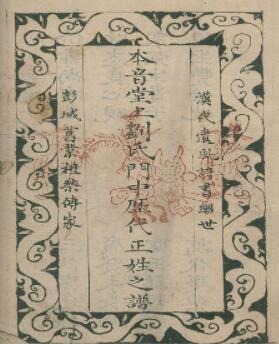 漢代遺風詩書繼世
本音堂上劉氏門中歷代正姓之譜
彭城舊業禮樂傳家